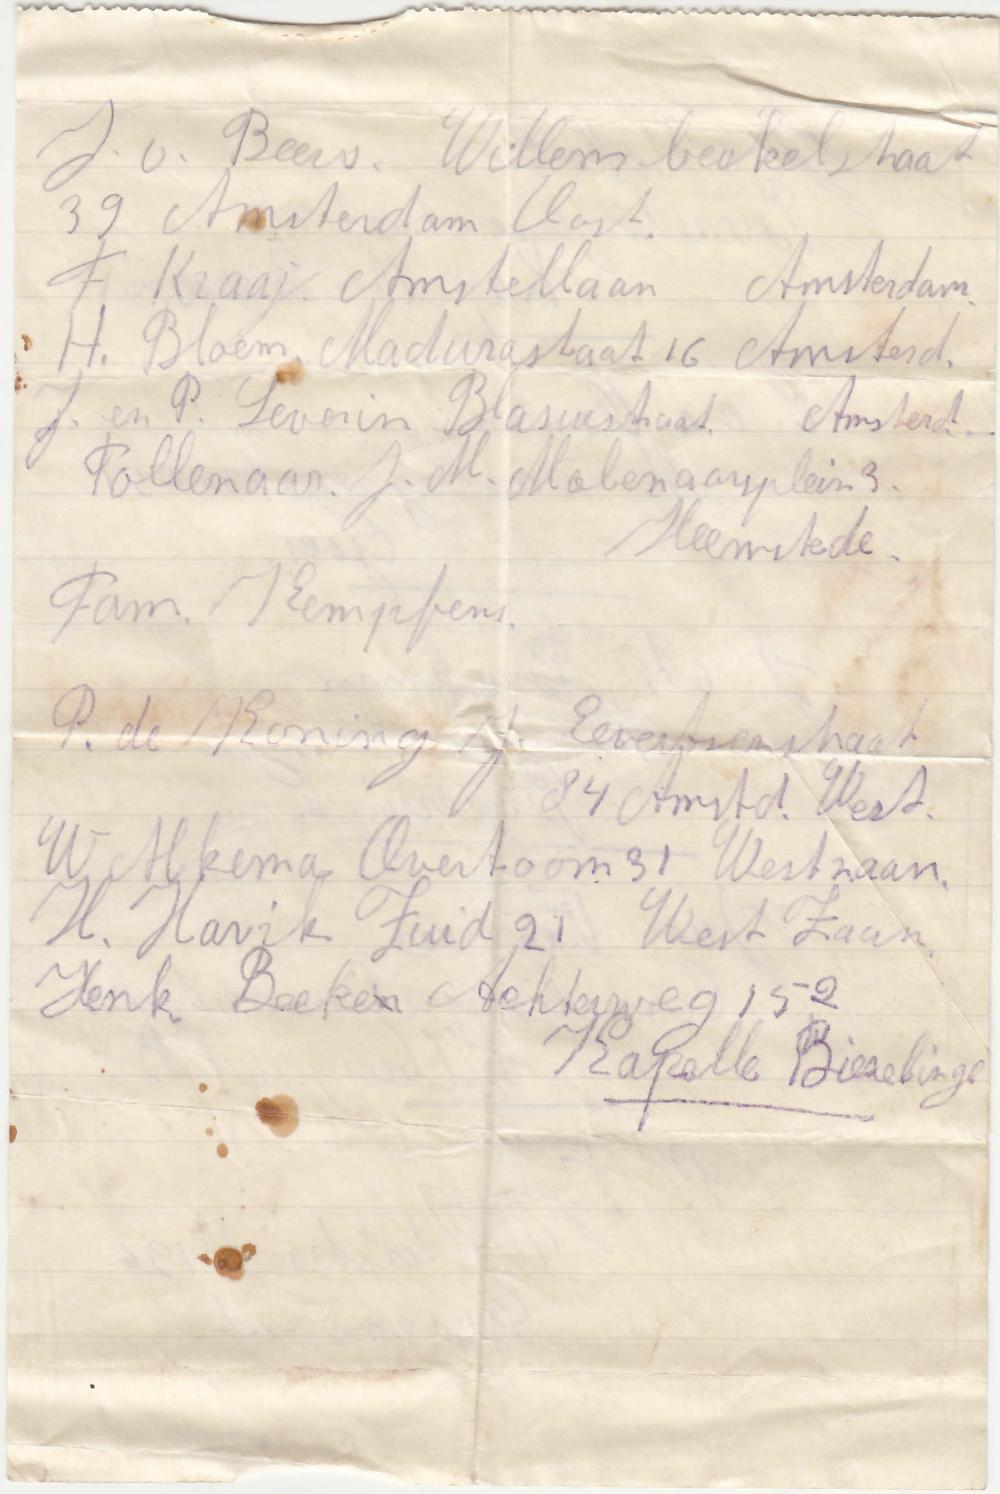 J. v. Beers. Willem beukelstraat
39 Amsterdam Oost.
F. Kraaj. Amstellaan Amsterdam.
H. Bloem. Madurastraat 16 Amsterd.
J. en P. Severin Blasiusstraat. Amsterd.
Follenaar. J. M. Molenaarplein 3.
Heemstede.
Fam. Kempfens.
P. de Koning J. Eevertsenstraat
84 Amstd. West.
W. Alkema Overtoom 31 Westzaan.
H. Havik Zuid 21 West Zaan.
Henk. Beeken Achterweg 152
Kapelle Biezelinge